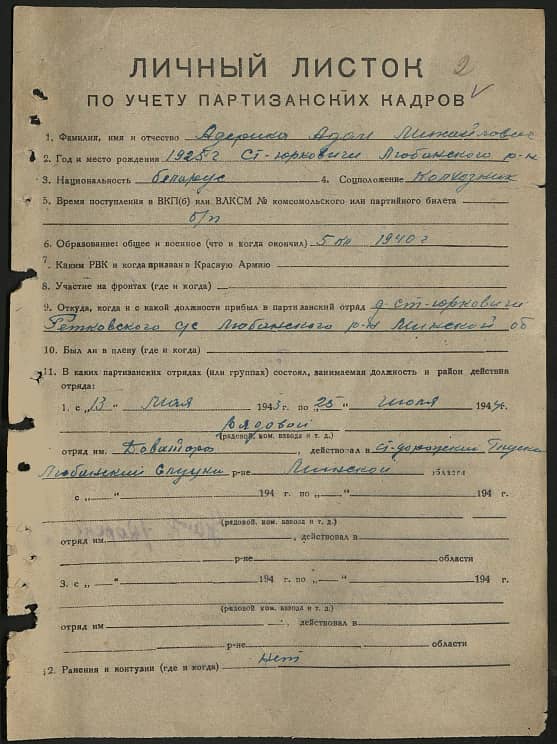 2
ЛИЧНЫЙ ЛИСТОК
ПО УЧЕТУ ПАРТИЗАНСКИХ КАДРОВ
1. Фамилия, имя и отчество Адерихо Адам Михайлович
2. Год и место рождения 1925 г Ст-юрковичи Любанского р-н
3. Национальность беларус 4. Соцположение Колхозник
5. Время поступления в ВКП(б) или ВЛКСМ № комсомольского или партийного билета
б/п
6. Образование: общее и военное (что и когда окончил) 5 кл 1940 г
7. Каким РВК и когда призван в Красную Армию
8. Участие на фронтах (где и когда)
9. Откуда, когда и с какой должности прибыл в партизанский отряд д. ст-юрковичи
с/с Любанского р-н Минской об
10. Был ли в плену (где и когда)
11. В каких партизанских отрядах (или группах) состоял, занимаемая должность и район действия
отряда:
1. с „13“ Мая 1943 г. по „25“ июля 194 г.
Рядовой
(рядовой, ком. взвода и т. д.)
отряд им. Доватора, действовал в ст-дорожский
Любанский Слуцки р-не Минской области
с „ “ 194 г. по „ “ 194 г.
(рядовой, ком. взвода и т. д.)
отряд им. , действовал в
р-не области
3. с „ “ 194 г. по „ “ 194 г.
(рядовой, ком. взвода и т. д.)
отряд им , действовал в
р-не области
2. Ранения и контузии (где и когда) нет